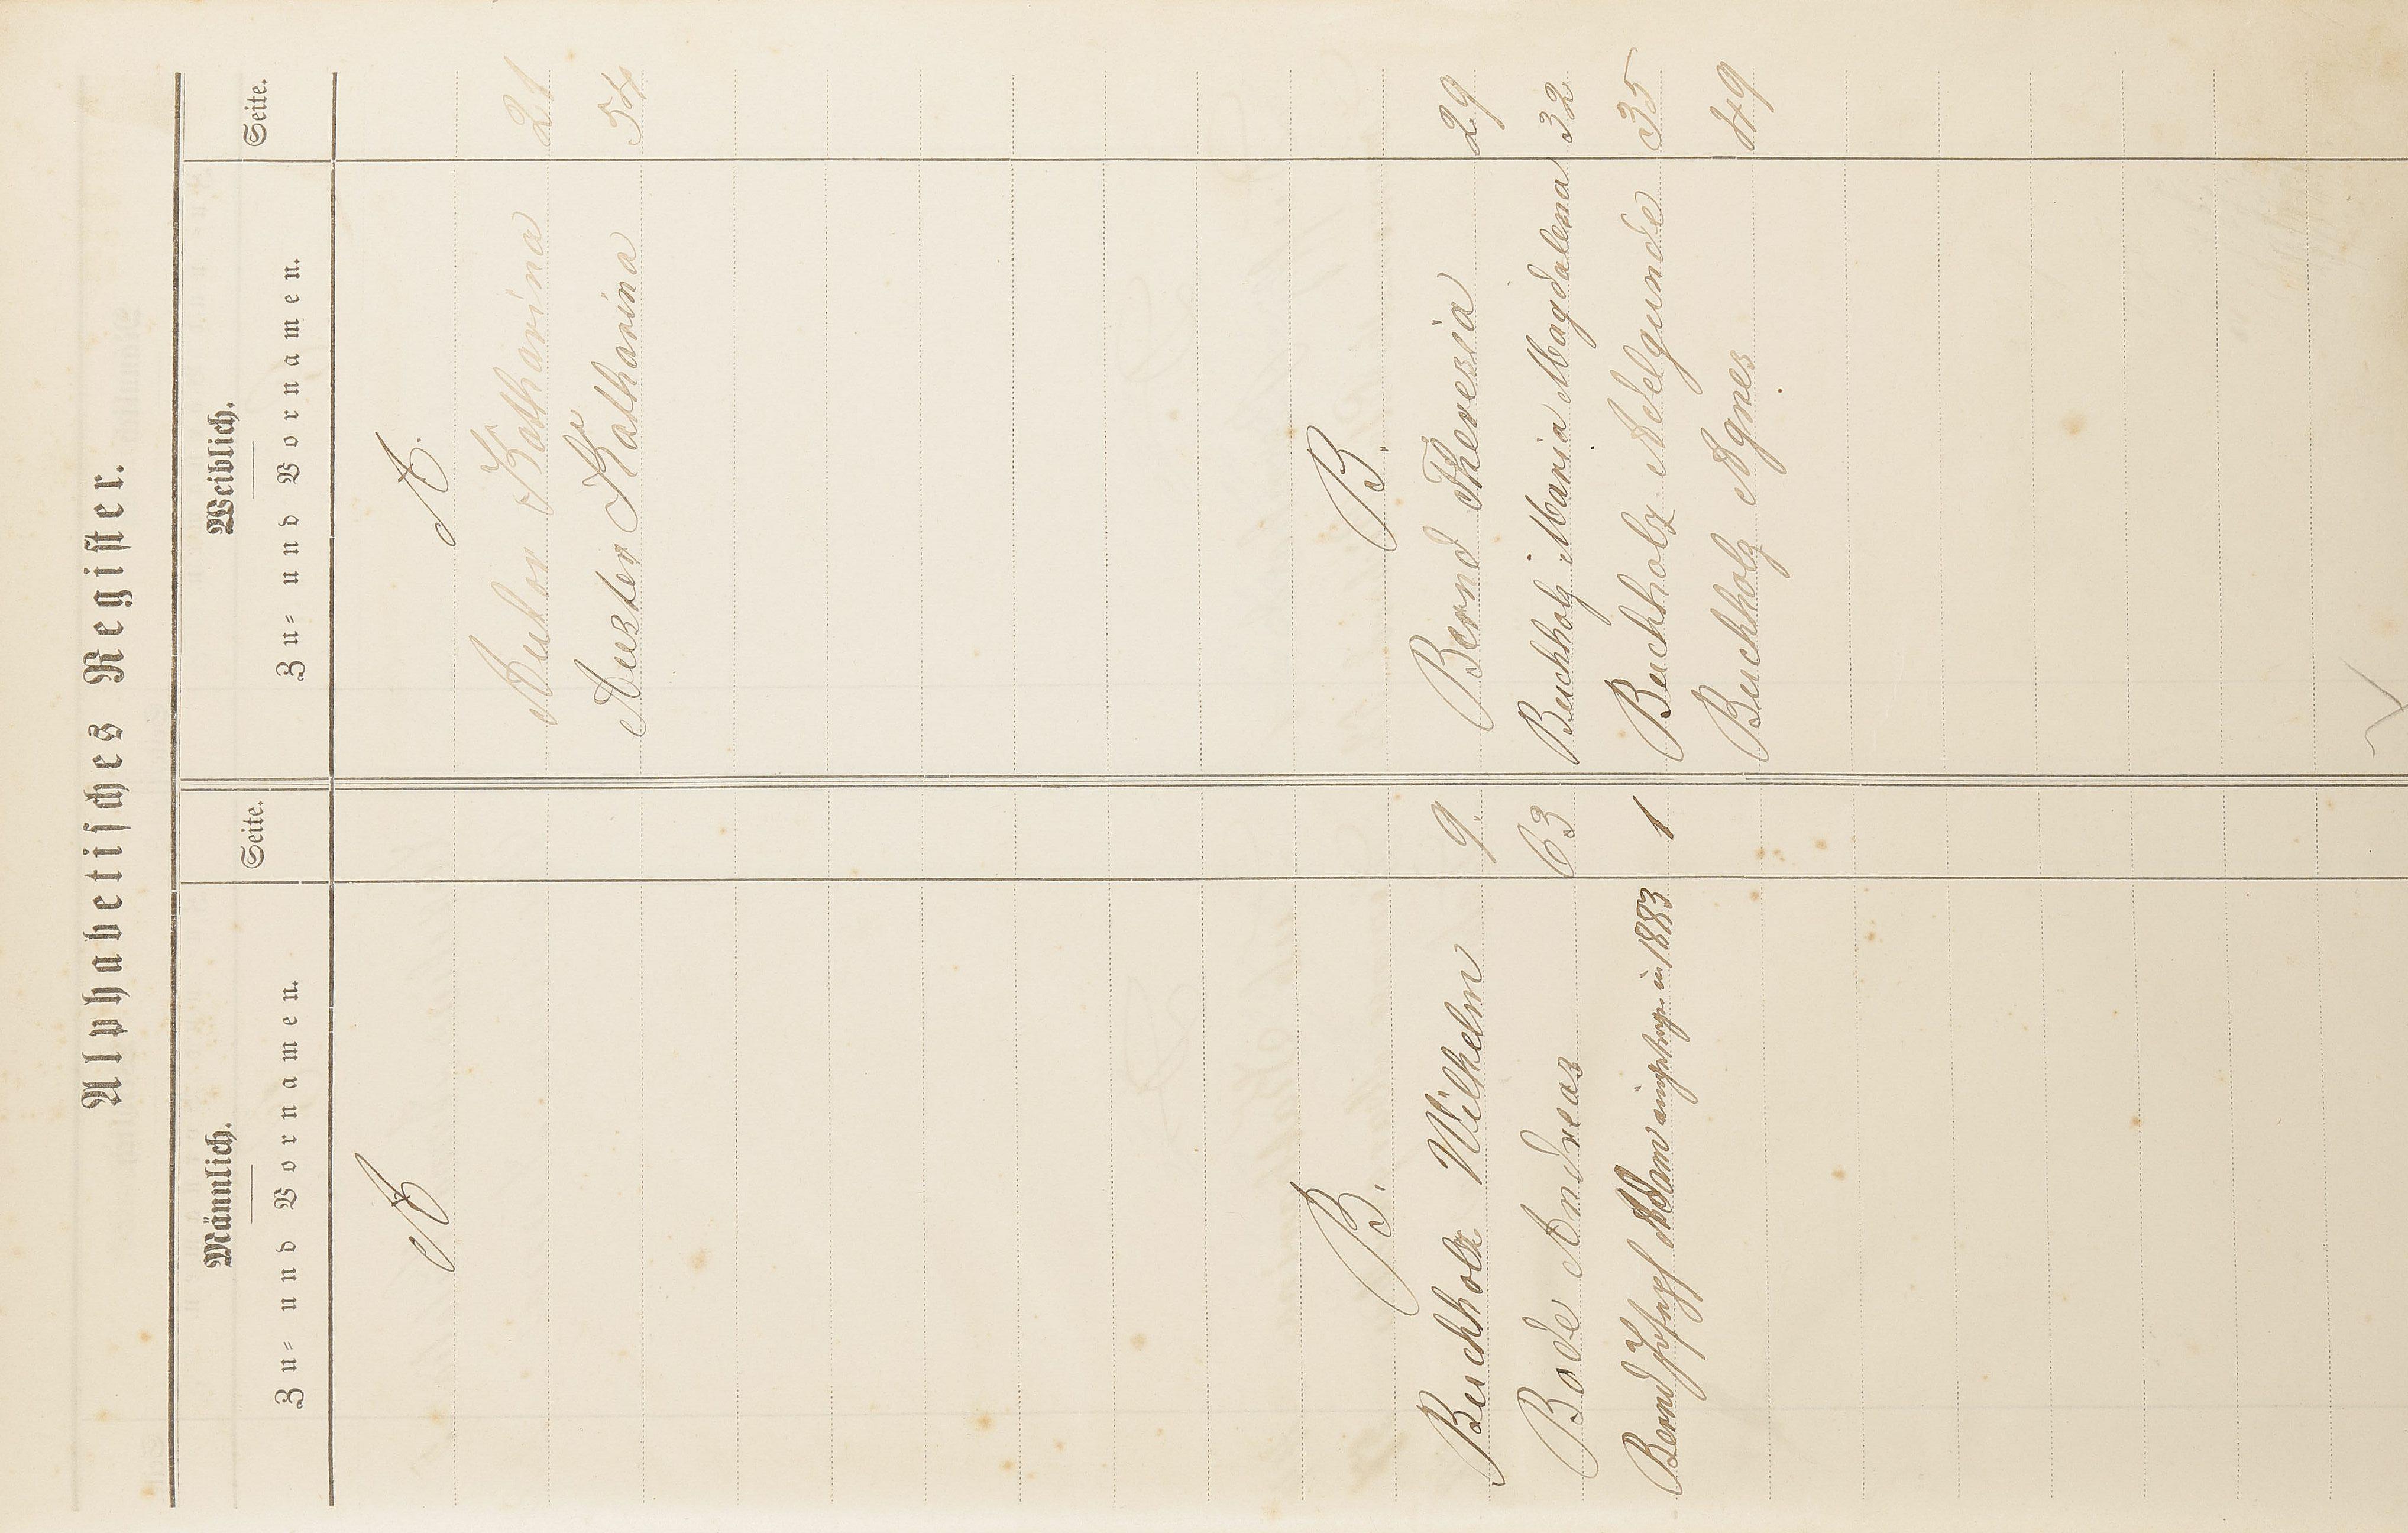 Alphabetisches Register.
Männlich.
Zu- und Vornamen.
Seite.
Weiblich.
Zu- und Vornamen.
Seite.
A
B.
Buchholz Wilhelm 9.
Bode Andreas 63
Bernd Joseph Adam in 1883 1
A.
Katharina 21
Auster Katharina 54
B.
Bernd Theresia 29
Buchholz Maria Magdalena 32
Buchholz Adelgunde 35
Buchholz Agnes 49